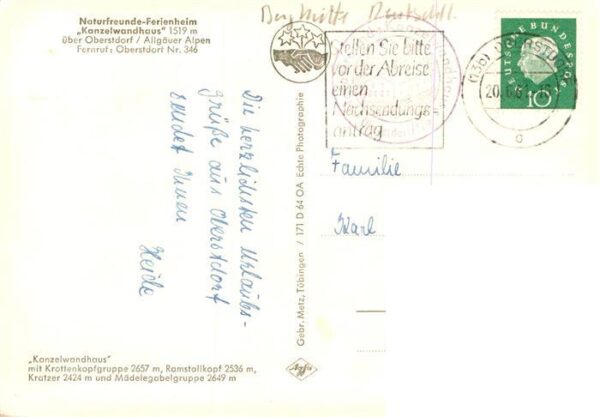 Naturfreunde-Ferienheim
„Kanzelwandhaus" 1519 m
über Oberstdorf / Allgäuer Alpen
Fernruf: Oberstdorf Nr. 346
Berghütte
Stellen Sie bitte
vor der Abreise
einen
Nachsendungs=
antrag
OBERSTDORF
20.
DEUTSCHE BUNDESPOST
10
Die herzlichsten Urlaubs-
grüße aus Oberstdorf
sendet Ihnen
Heide
Gebr. Metz, Tübingen / 171 D 64 OA Echte Photographie
Familie
Karl
„Kanzelwandhaus"
mit Krottenkopfgruppe 2657 m, Ramstallkopf 2536 m,
Kratzer 2424 m und Mädelegabelgruppe 2649 m
Agfa